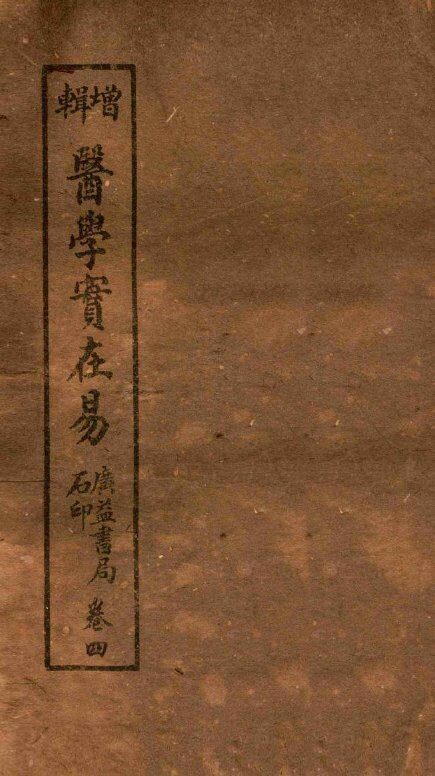 增輯
醫學實在易
廣益書局
石印
卷四